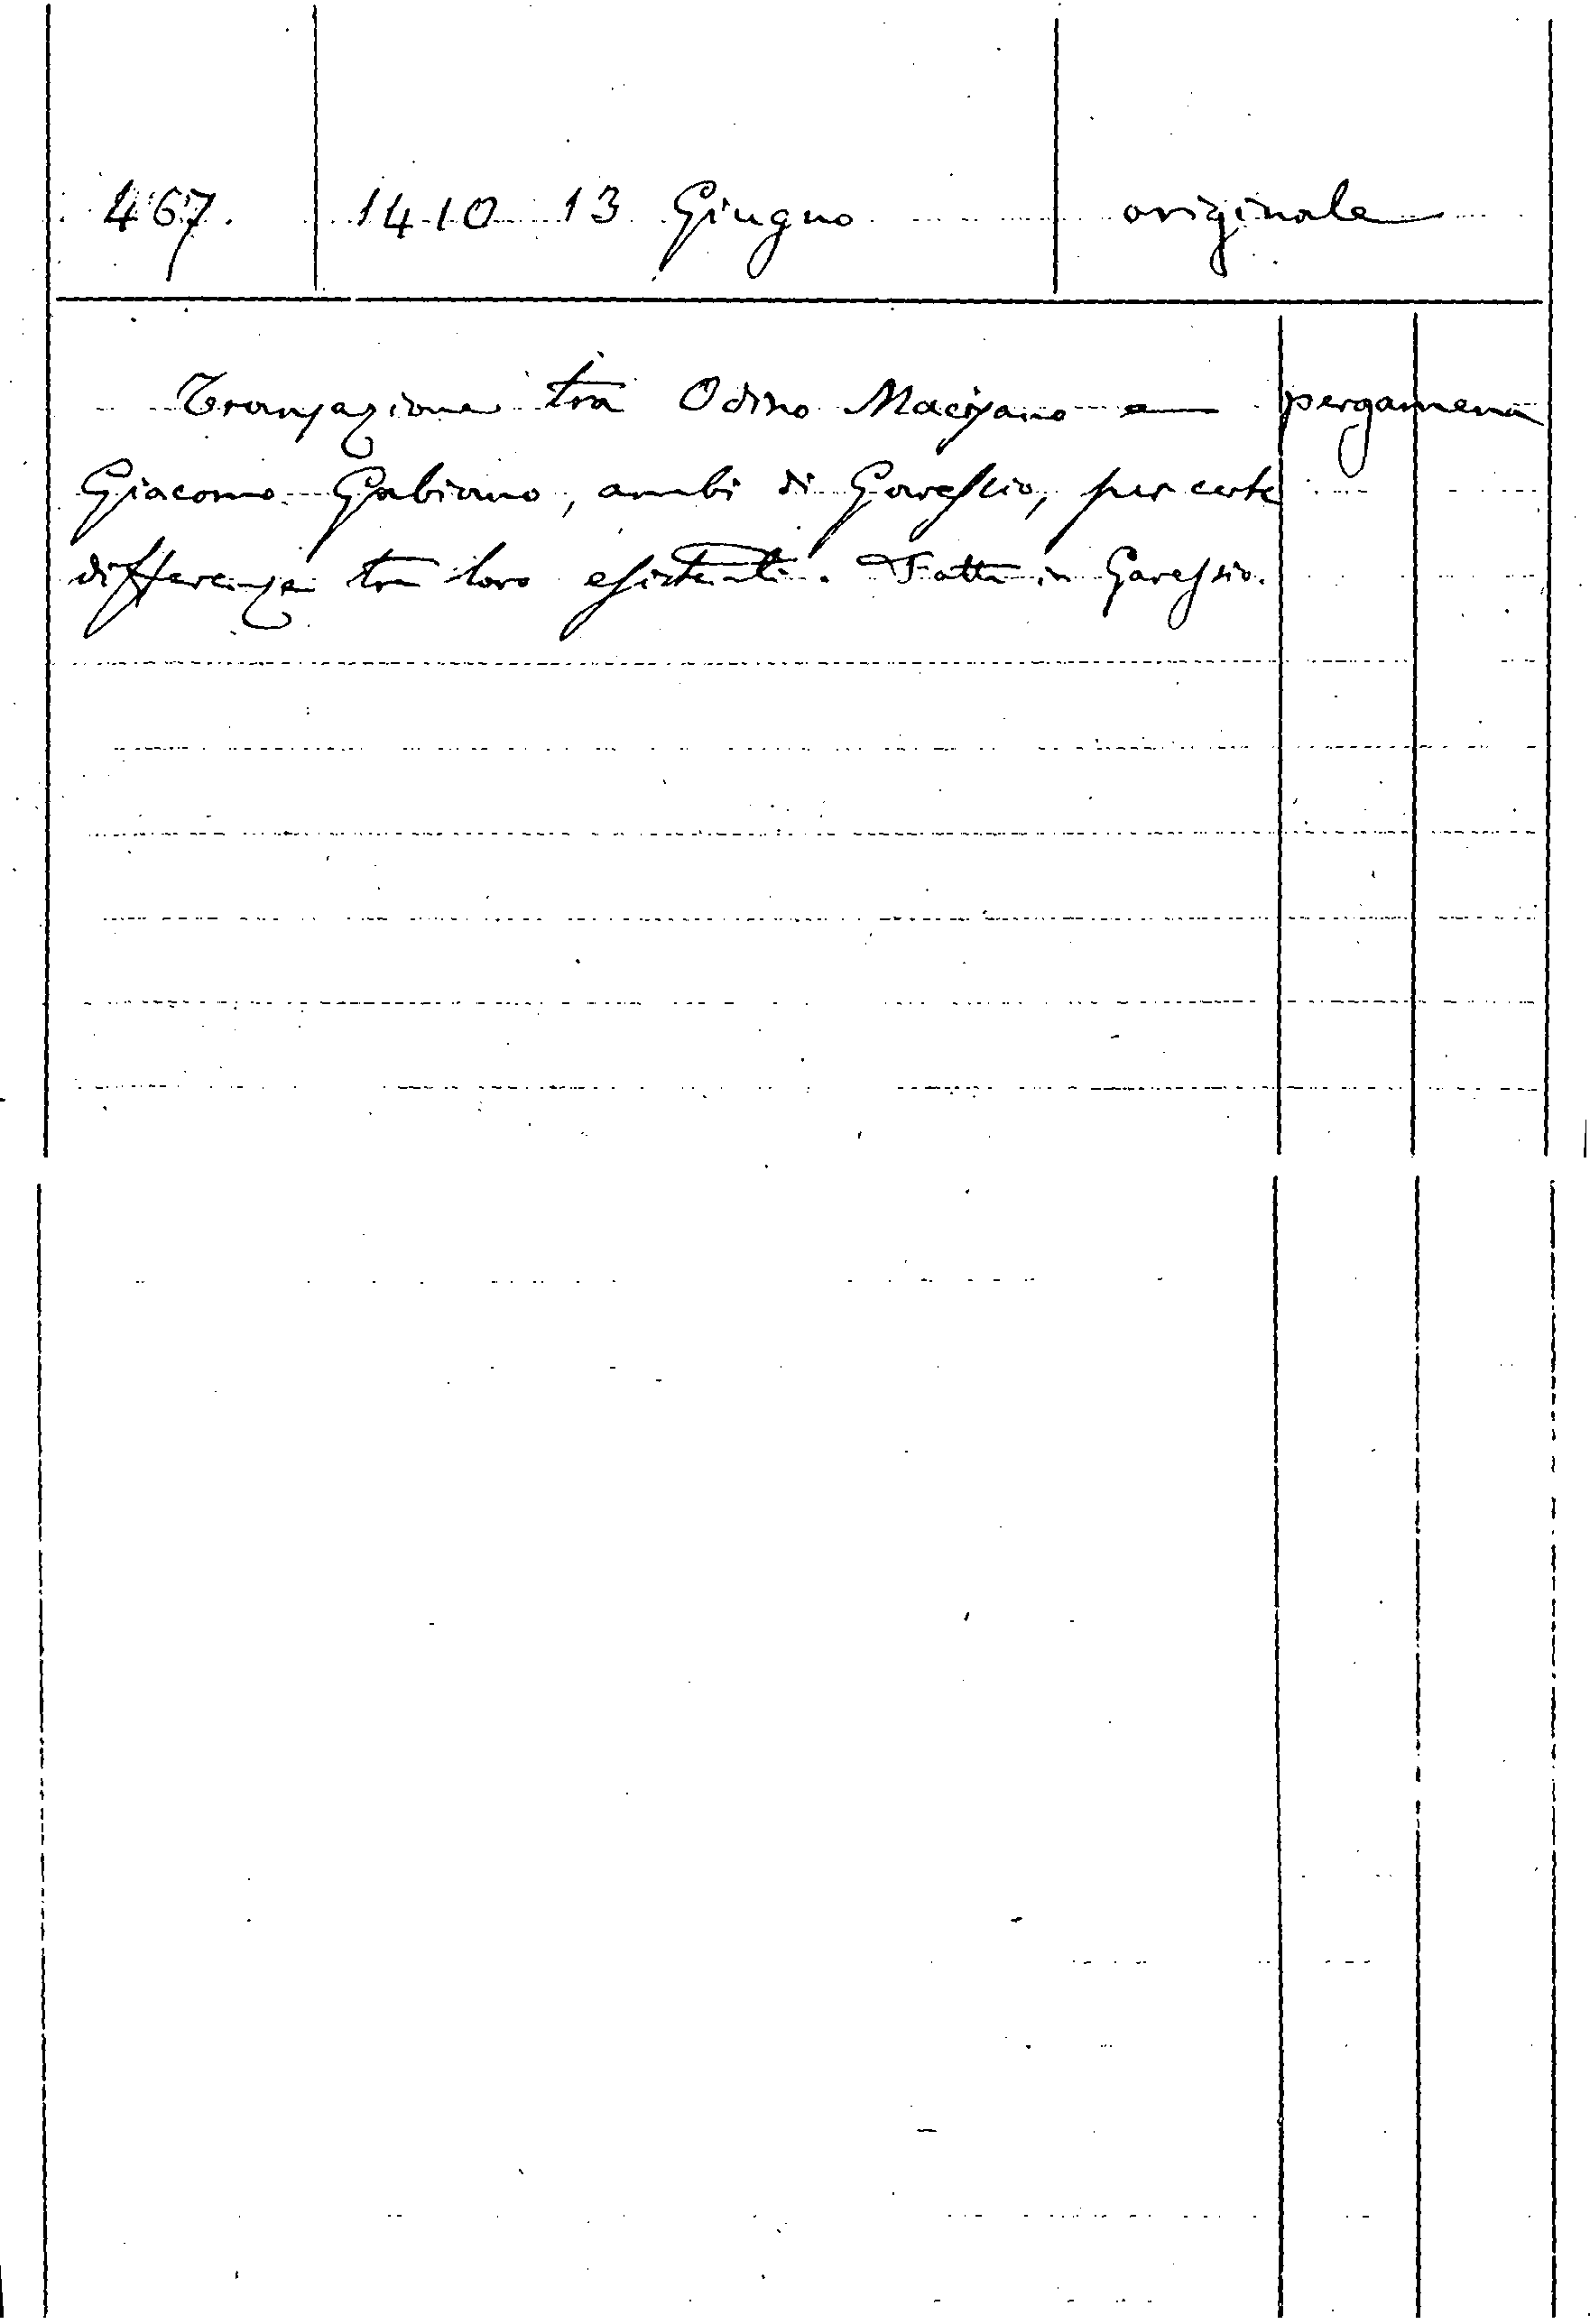 467. 1410 13 Giugno originale
Transazione tra Odino e pergamena
Giacomo Gabiano, ambi di Garessio, per certe
differenze tra loro esistenti. Fatta in Garessio.